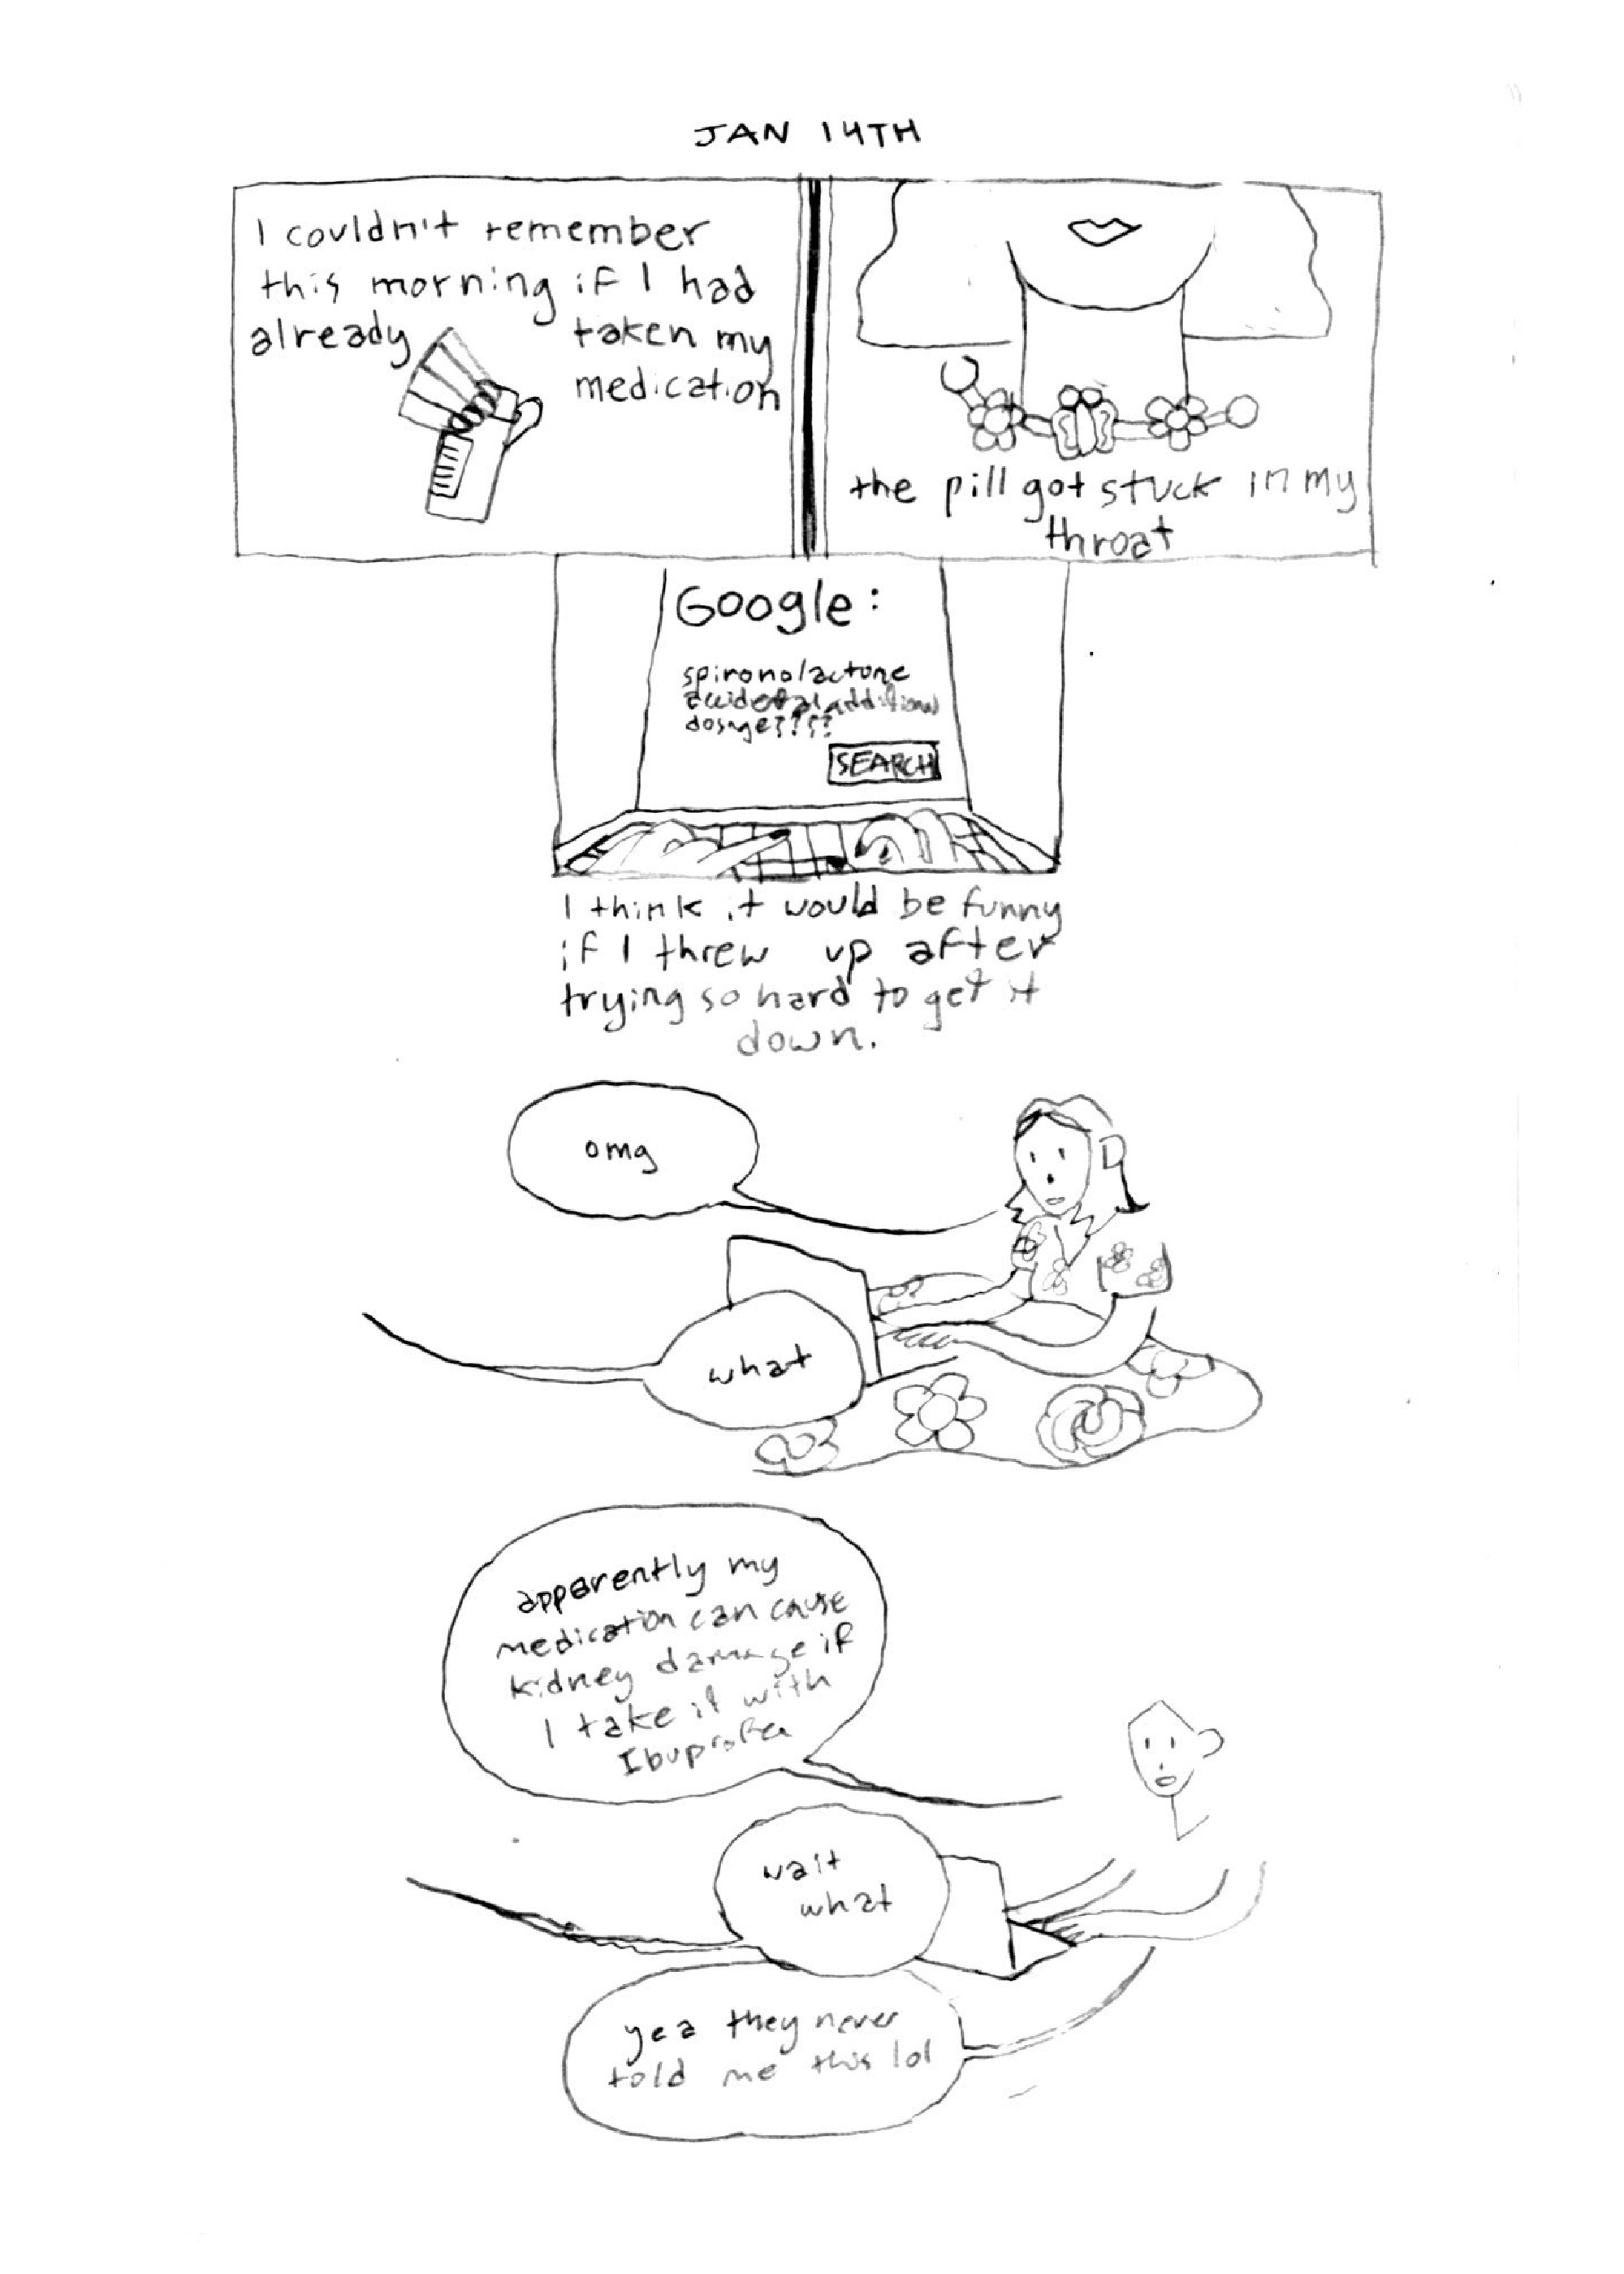 JAN 14TH
I couldn't remember
this morning if I had
already taken my
medication
the pill got stuck in my
throat
Google:
spironolactone
accidental additional
dosage????
SEARCH
I think it would be funny
if I threw up after
trying so hard to get it
down.
omg
what
apparently my
medication can cause
kidney damage if
I take it with
Ibuprofen
wait
what
yea they never
told me this lol